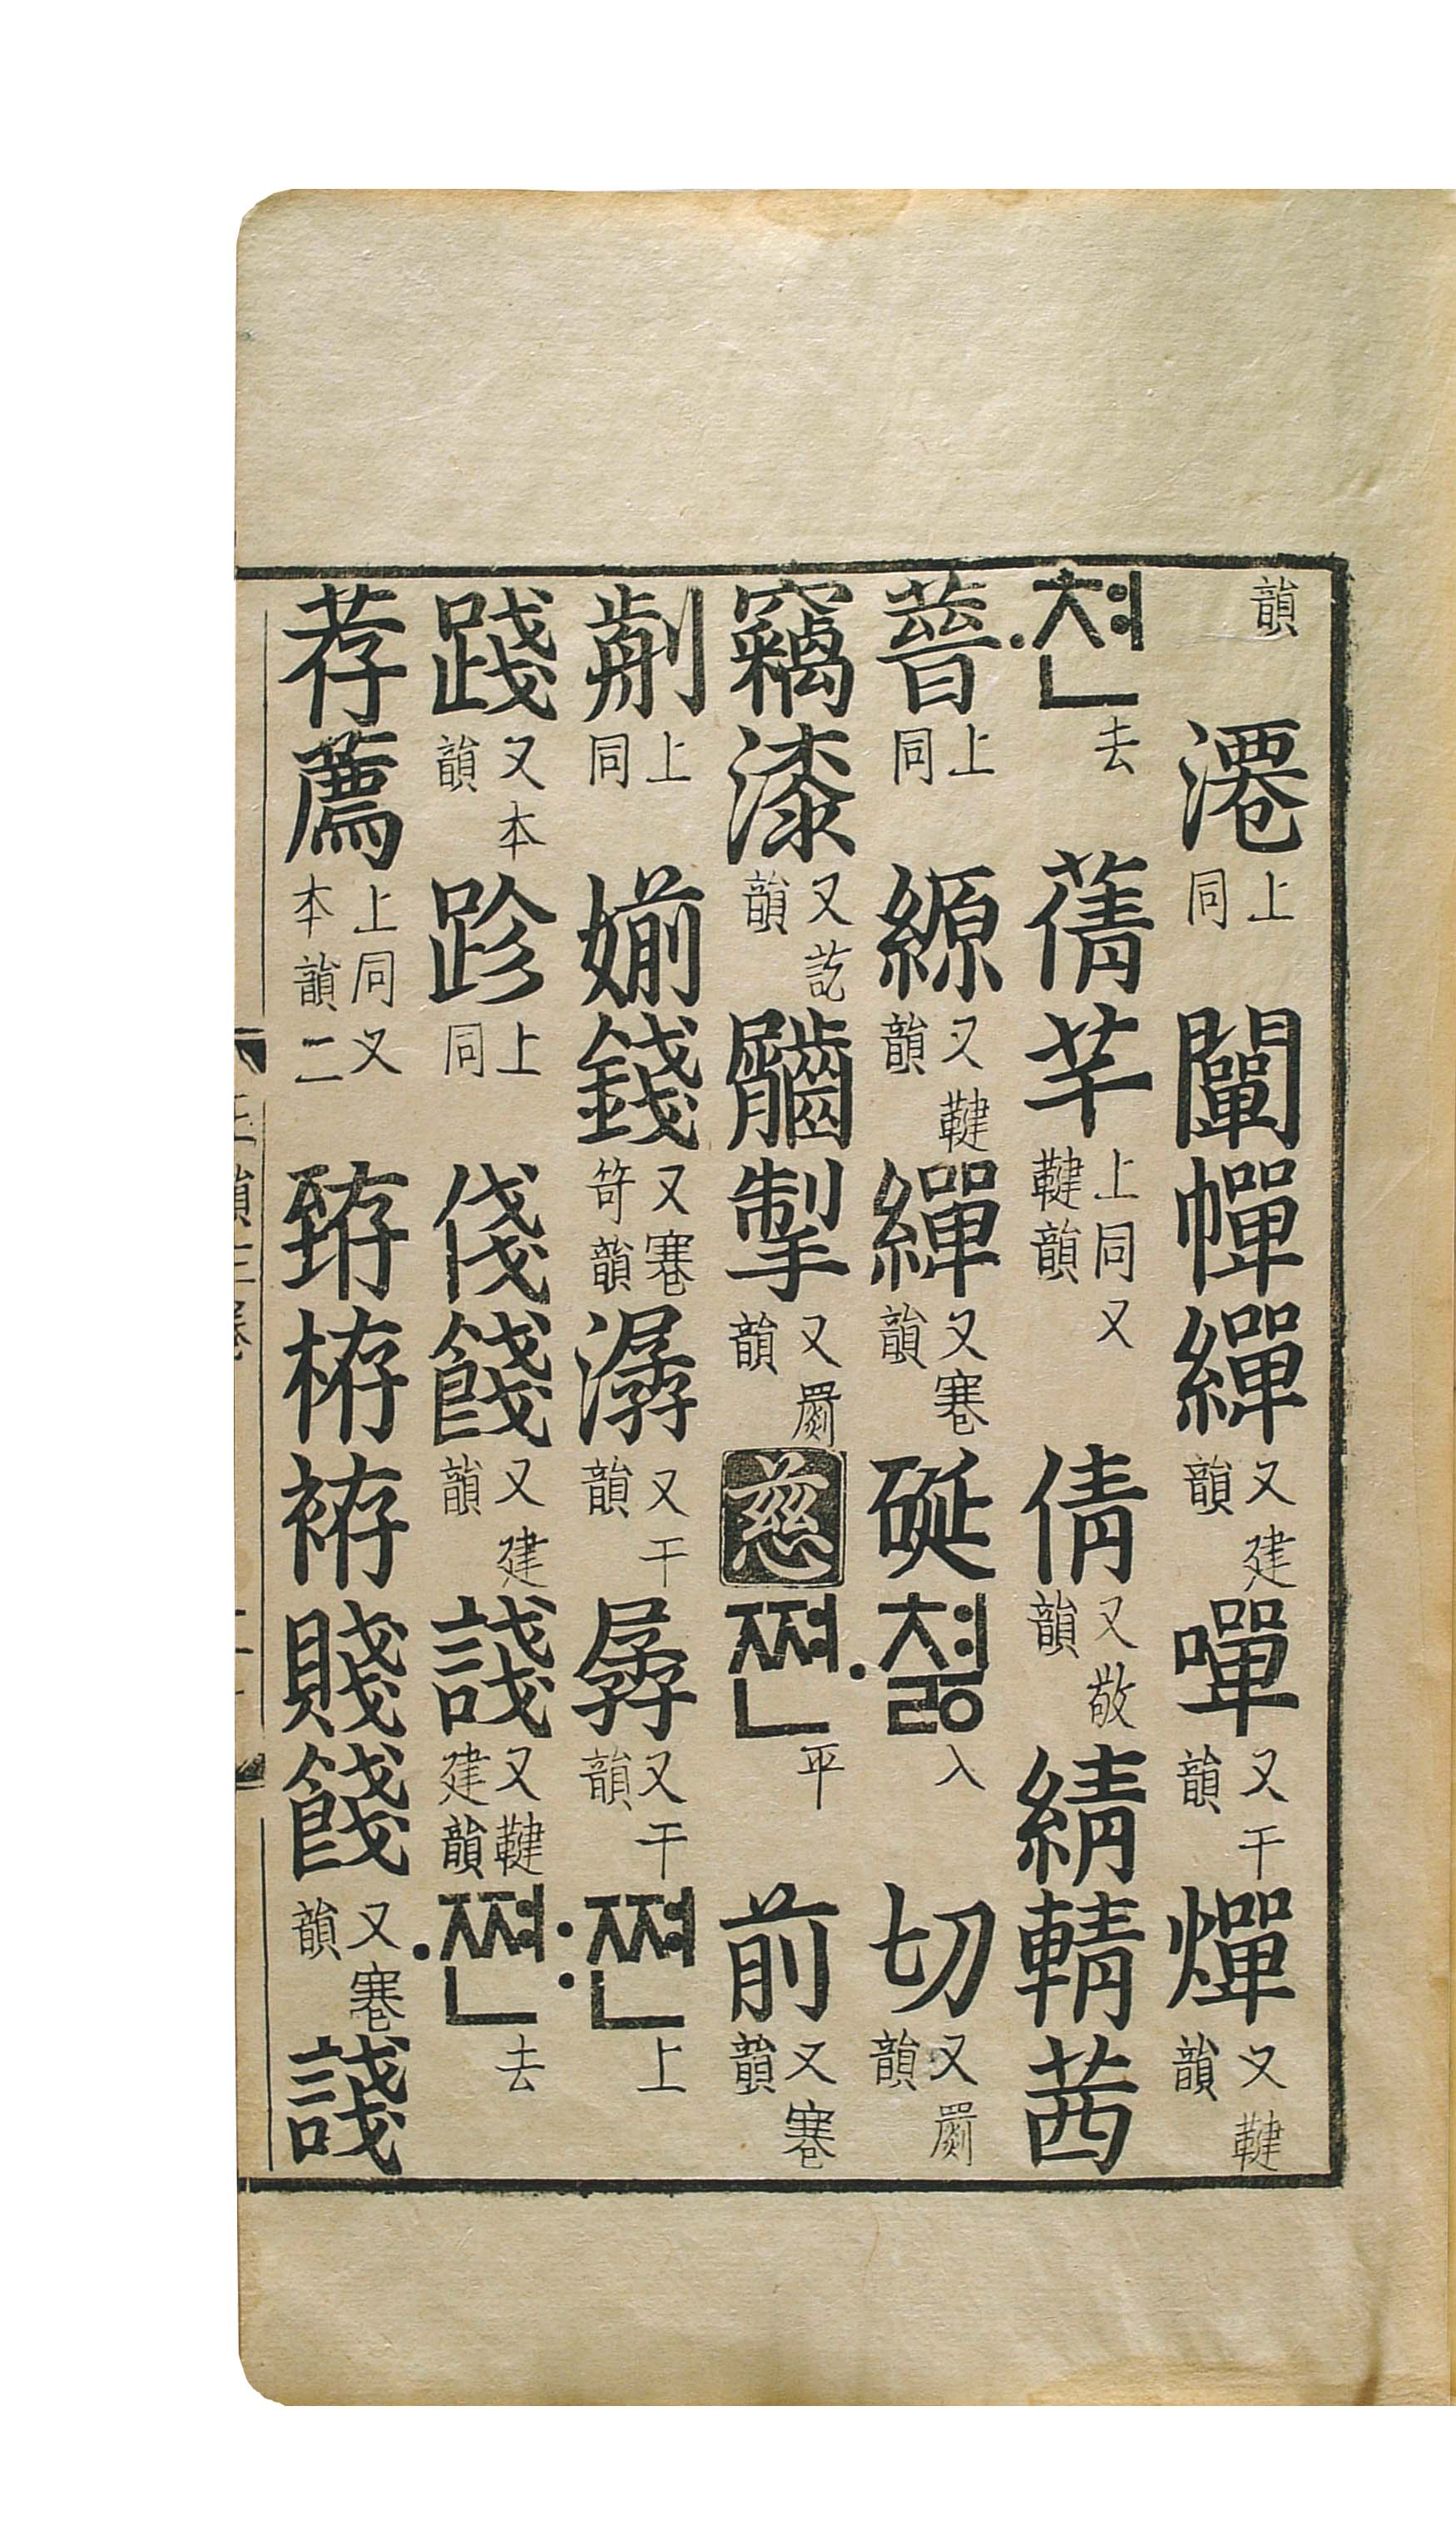 韻 𨗇上同 闡幝繟又建韻 嘽又干韻 燀又鞬韻
·쳔去 蒨芊上同又鞬韻 倩又敬韻 綪輤茜
䓪上同 縓又鞬韻 繟又蹇韻 硟 ·쳟入 切又罽韻
竊漆又訖韻 䶪掣又罽韻 慈 쪈平 前又蹇韻
㓨上同 媊錢又蹇笴韻 潺又干韻 孱又干韻 :쪈上
踐又本韻 跈上同 俴餞又建韻 諓又鞬建韻 ·쪈去
荐薦上同又本韻二 臶栫袸賤餞又蹇韻 諓